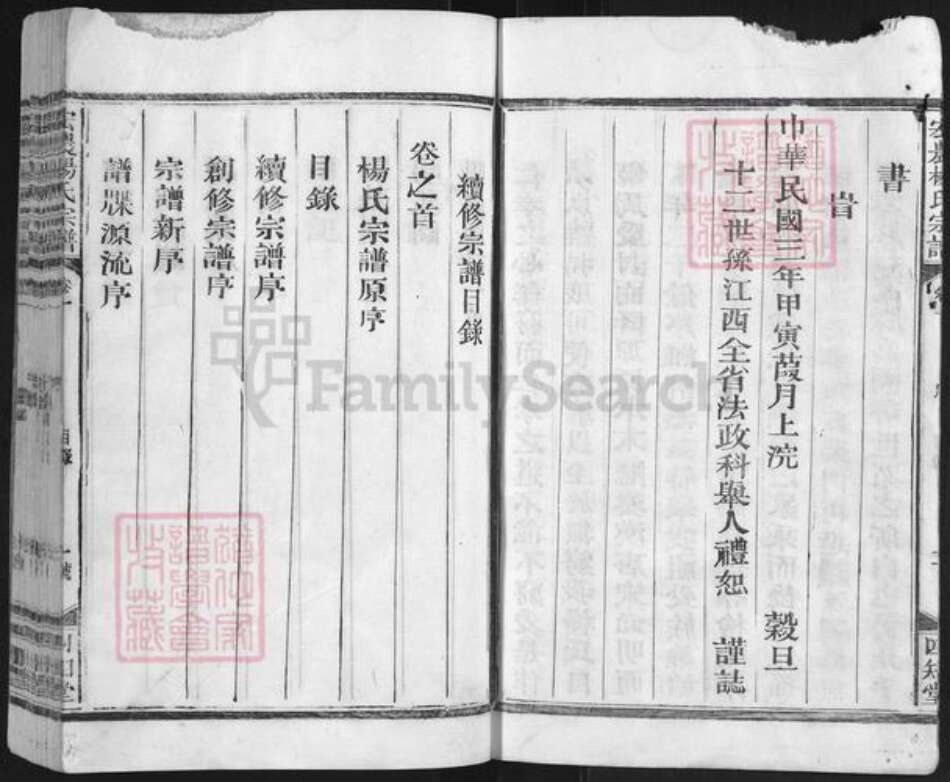 書
旹
中華民國三年甲寅葭月上浣 穀旦
十二世孫江西全省法政科舉人禮恕 謹誌
四知堂
續修宗譜目錄
卷之首
楊氏宗譜原序
目錄
續修宗譜序
創修宗譜序
宗譜新序
譜牒源流序
楊氏宗譜
目錄
FamilySearch